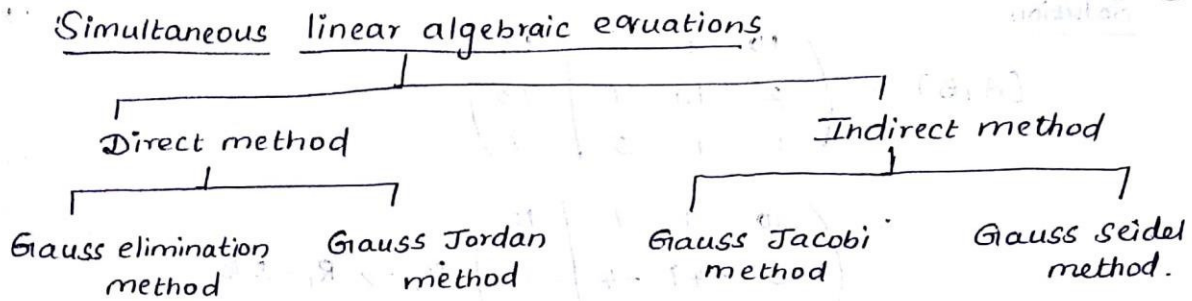 Simultaneous linear algebraic equations.
Direct method
Indirect method
Gauss elimination method
Gauss Jordan method
Gauss Jacobi method
Gauss seidel method.